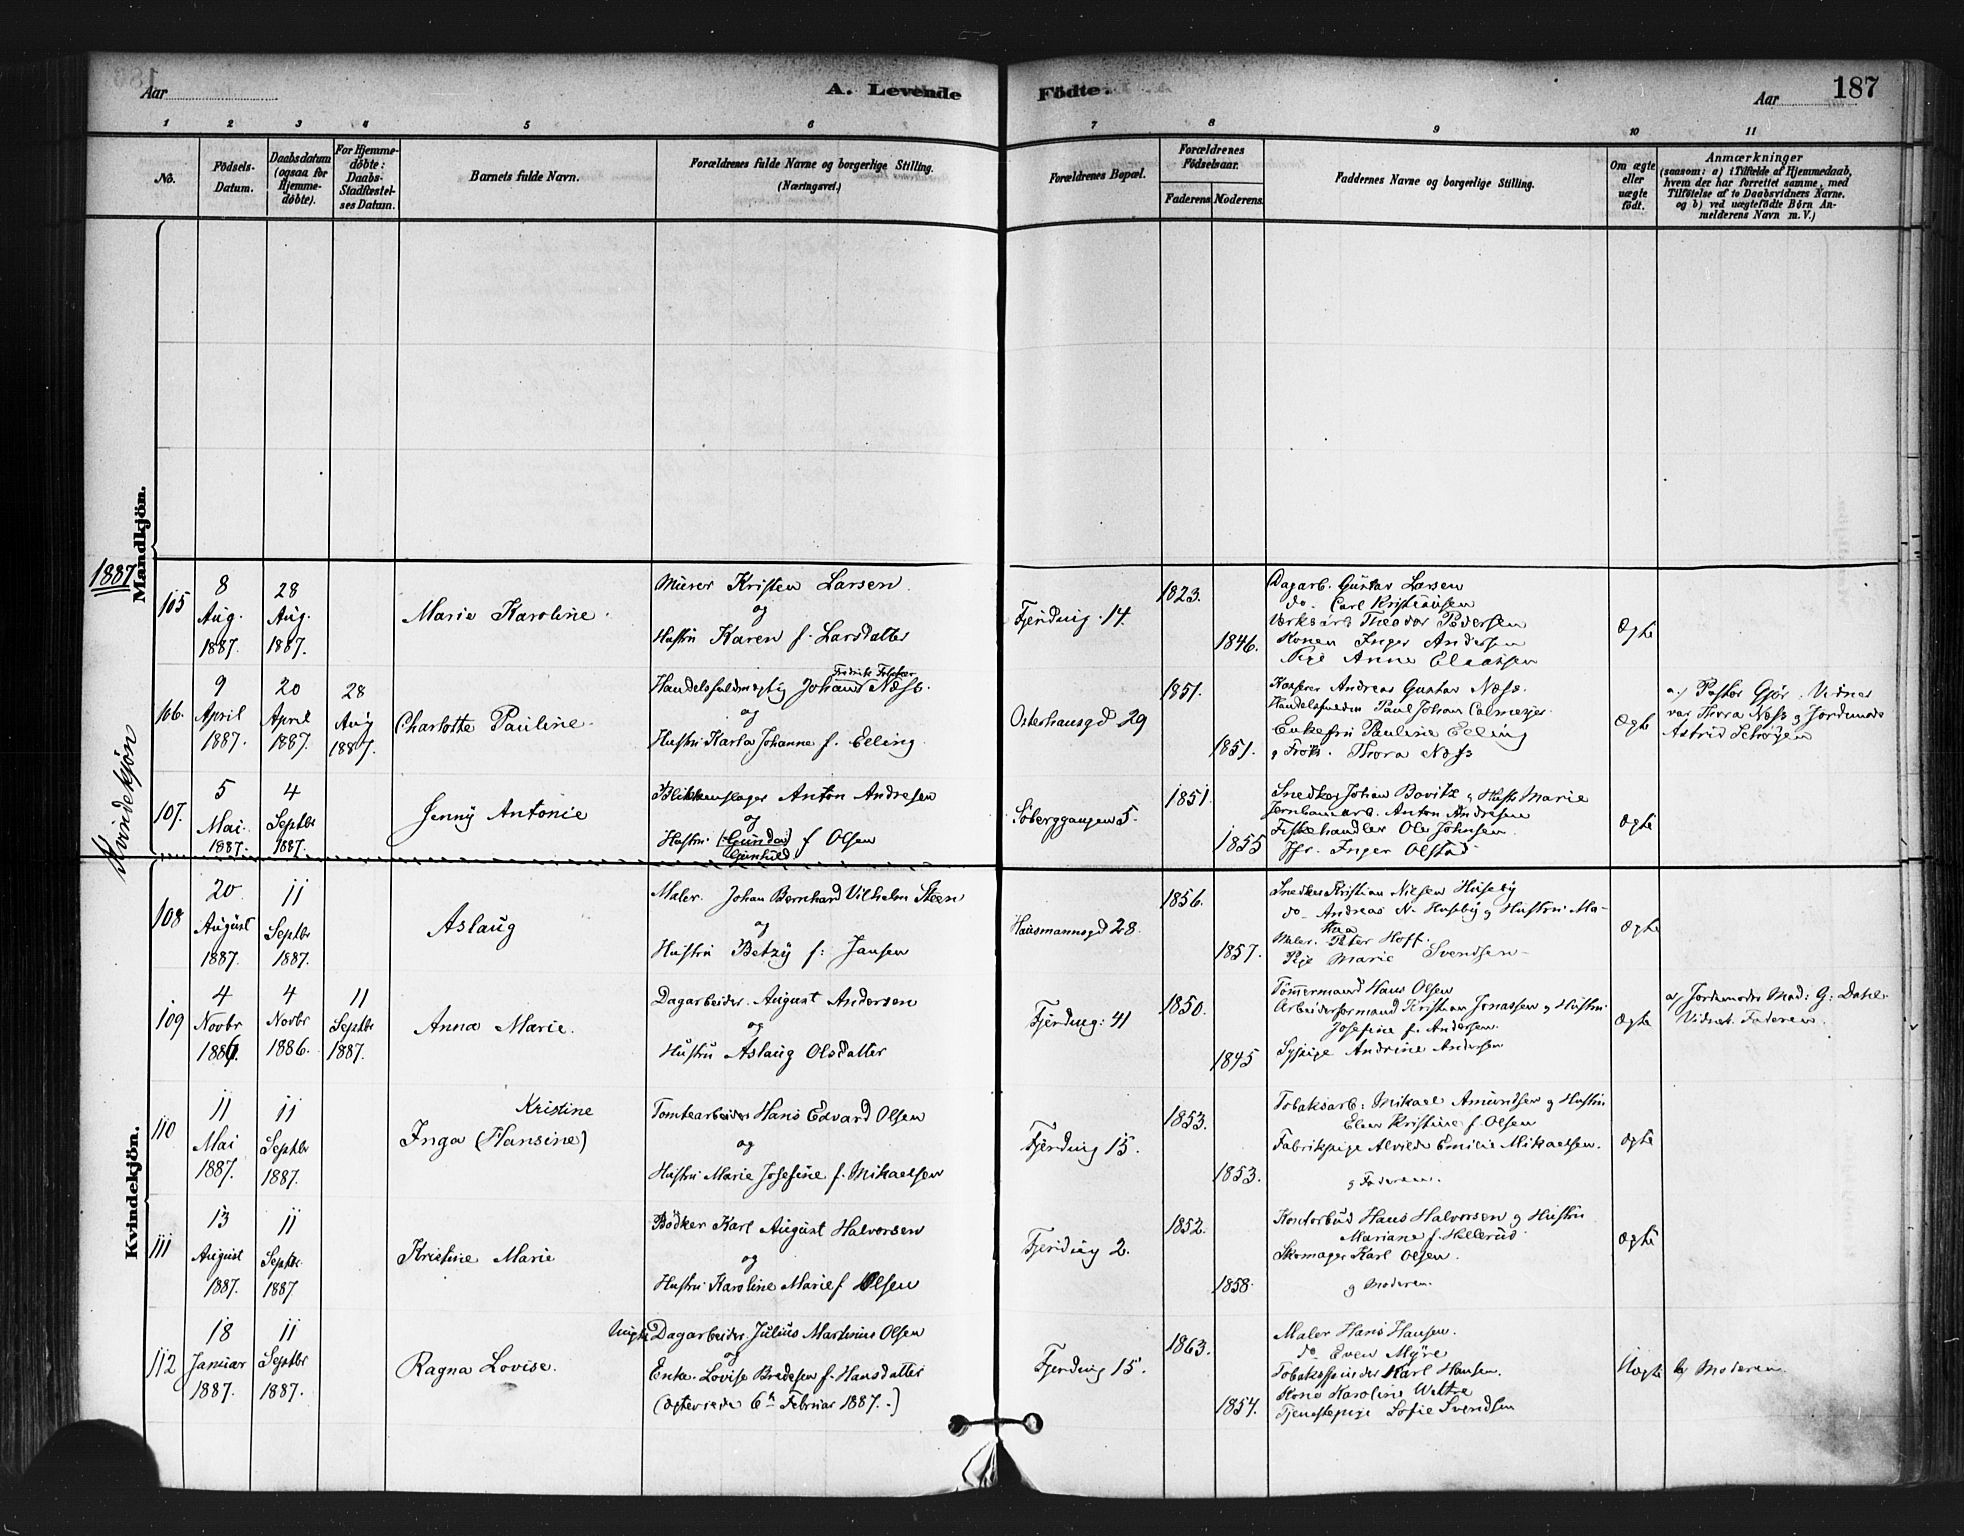 Aar
A. Levende
Födte.
Aar
187
1
2
3
4
5
6
7
8
9
10
11
No.
Födsels-
Datum.
Daabsdatum
(ogsaa for
Hjemme-
döbte).
For Hjemme-
döbte:
Daabs-
Stadfæstel-
ses Datum.
Barnets fulde Navn.
Forældrenes fulde Navne og borgerlige Stilling.
(Næringsvei.)
Forældrenes Bopæl.
Forældrenes
Födselsaar.
Faderens.
Moderens.
Faddernes Navne og borgerlige Stilling.
Om ægte
eller
uægte
födt.
Anmærkninger
(saasom: a) i Tilfælde af Hjemmedaab,
hvem der har forrettet samme, med
Tilföielse af to Daabsvidners Navne.
og b) ved uægtefödte Börn An-
melderens Navn m. V.)
Mandkjön.
1887
Kvindekjön
105
8
Aug.
1887.
28
Aug.
1887.
Marie Karoline
Murer Kristen Larsen
og
Hustru Karen f. Larsdatter
Fjerding. 14.
1823.
1846.
Dagarb. Gustav Larsen
do. Carl Kristiansen
Verksarb. Theodor Pedersen
Konen Inger Andersen
Pige Anne Eliassen
Ægte
106.
9
April
1887.
20
April
1887.
28
Aug
1887.
Charlotte Pauline
Handelsfuldmegtig Johans Næss.
og
Hustru Karla Johanne f. Eeling
Osterhausgd 29
1851.
1851.
Kasserer Andreas Gustav Næss.
Handelsfuldm Paul Johan Calmeyer
Enkefru Pauline Eeling
g Frök. Thora Næss
Ægte
a.) Pastor Gjör. Vidner
var Thora Næss g Jordemor
Astrid
107.
5
Mai
1887.
4
Septbr
1887.
Jenny Antonie
Blikkenslager Anton Andresen
og
Hustru (Gunda) f Olsen
Gunhild
Söberggangen 5.
1851.
1855
Snedker Johan Bovitz g Hustr Marie
Jernbanearb. Anton Andresen
Fiskehandler Ole Johnsen
Jfr. Inger Olstad
Ægte
Kvindekjön.
108
20
August
1887.
11
Septbr
1887.
Aslaug
Maler. Johan Bernhard Vilhelm Steen
og
Hustru Betzy f: Jansen
Hausmannsgd 28.
1856.
1857.
Snedker Kristian Nielsen Huseby
do Andreas N. Huseby g Hustru Ma-
thea
Maler. Peter Hoff.
Pige Marie Svendsen
Ægte
109
4
Novbr
1886.
4
Novbr
1886.
11
Septbr
1887.
Anna Marie.
Dagarbeider. August Andersen
og
Hustru Aslaug Olsdatter
Fjerding: 41
1850.
1845
Tömmermand Hans Olsen
Arbeidsformand Kristian Jonassen g Hustru
Josefine f. Andersen.
Sypige Andrine Andersen
Ægte
a) Jordemoder Mad: G: Dahl.
Vidnet. Faderen.
110
11
Mai
1887.
11
Septbr
1887.
Kristine
Inga (Hansine)
Tomtearbeider Hans Edvard Olsen
og
Hustru Marie Josefine f. Mikaelsen
Fjerding 15.
1853.
1853.
Tobaksarb: Mikael Amundsen g Hustru
Elen Kristine f. Olsen
Fabrikpige Alvilde Emilie Mikaelsen.
g Faderen.
Ægte
111
13
August
1887.
11
Septbr.
1887
Kristine Marie
Bödker Karl August Halvorsen
og
Hustru Karoline Marie f Olsen
Fjerding 2.
1852.
1858
Kontorbud Hans Halvorsen g Hustru
Mariane f. Hellerud
Skomager Karl Olsen.
g Moderen.
Ægte
112
18
Januar
1887.
11
Septbr
1887.
Ragna Lovise.
Ungk Dagarbeider Julius Martinius Olsen
og
Enke. Lovise Bredesen f. Hansdatter
(Ægteviede 6te Februar 1887.)
Fjerding 15.
1863.
1854.
Maler Hans Hansen.
do Even Myre
Tobaksspinder Karl Hansen.
Kone Karoline Wettre
Tjenestepige Sofie Svendsen
Uægte
b) Moderen